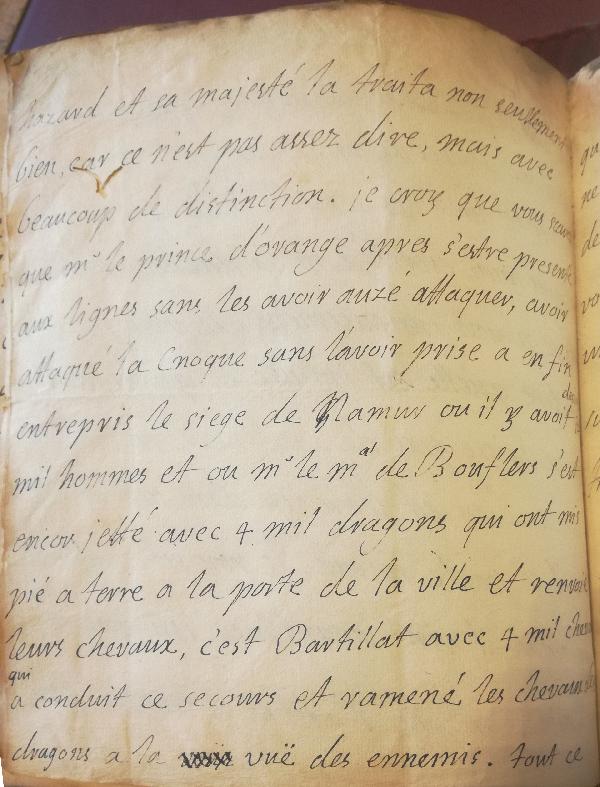 hazard et sa majesté la traita non seullement
bien, car ce n'est pas assez dire, mais avec
beaucoup de distinction. je croy que vous
que mr le prince d'orange apres s'estre presenté
aux lignes sans les avoir auzé attaquer, avoir
attaqué la Cnoque sans l'avoir prise a en fin
entrepris le siege de Namur ou il y avoit
mil hommes et ou mr le mal de Bouflers s'est
encor jetté avec 4 mil dragons qui ont mis
pié a terre a la porte de la ville et
leurs chevaux, c'est Bartillat avec 4 mil
qui
a conduit ce secours et ramené les chevaux
dragons a la vuë des ennemis. tout ce